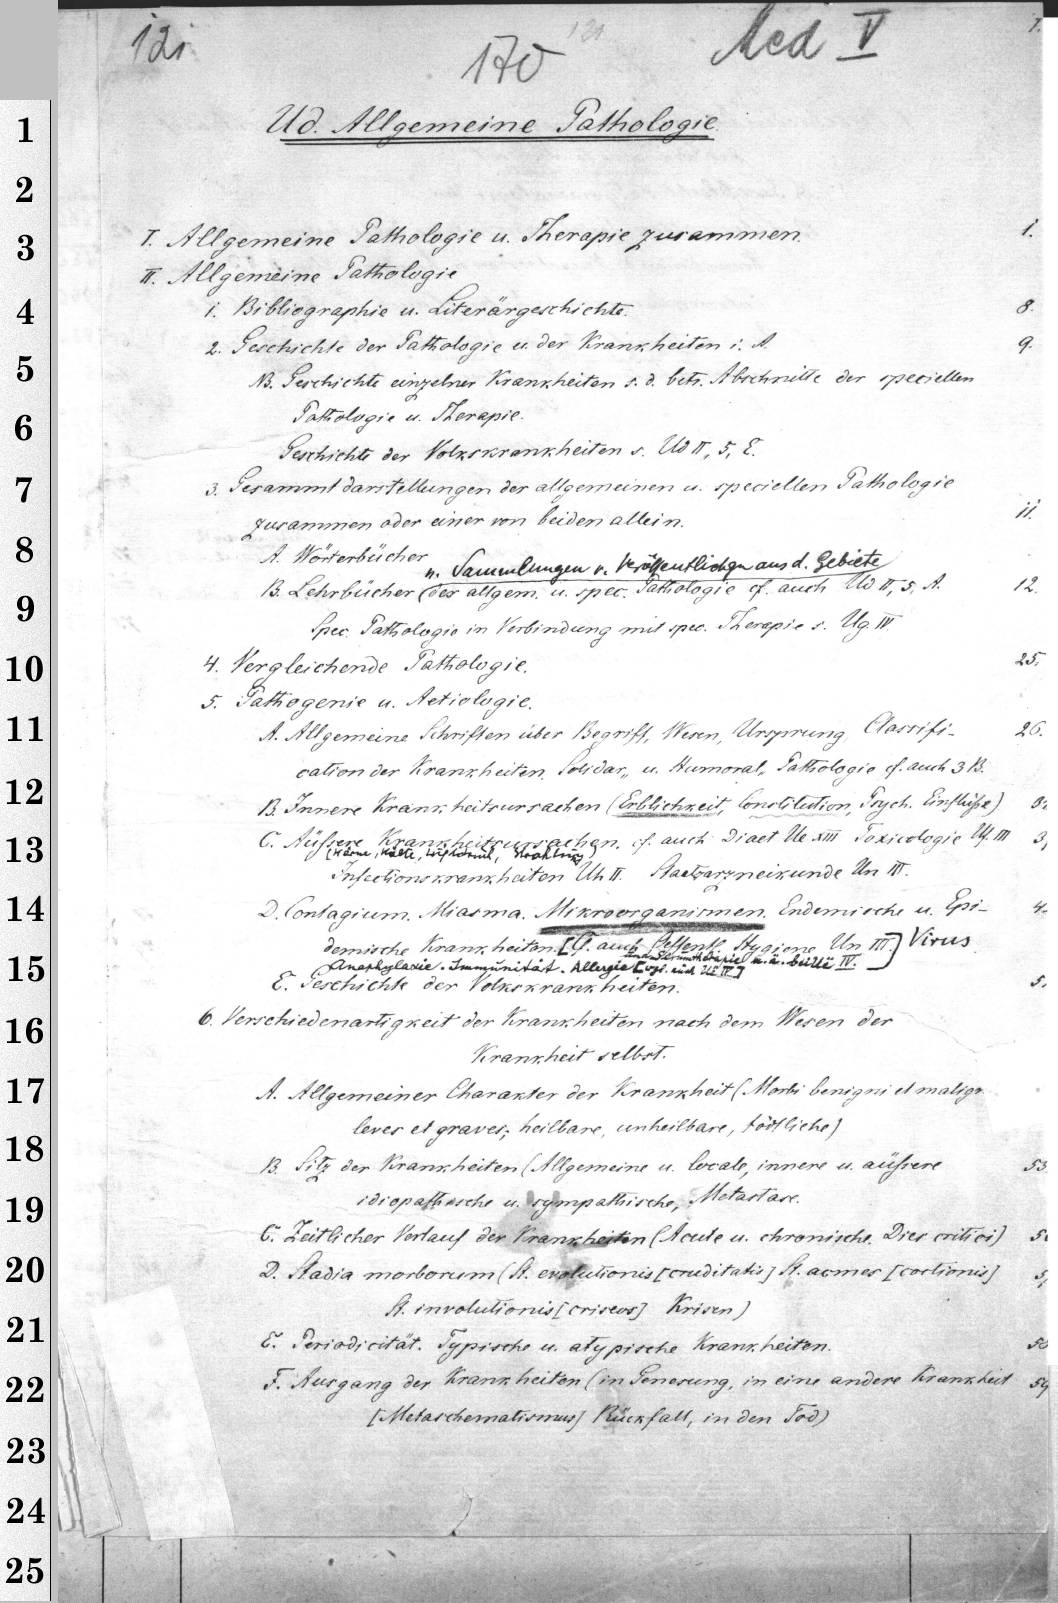 121
121
170
Med V
1.
Ud. Allgemeine Pathologie
I. Allgemeine Pathologie u. Therapie zusammen. 1.
II. Allgemeine Pathologie
1. Bibliographie u. Literärgeschichte. 8.
2. Geschichte der Pathologie u. der Krankheiten i. A. 9.
NB. Geschichte einzelner Krankheiten s. d. betr. Abschnitte der speciellen
Pathologie u. Therapie.
Geschichte der Volkskrankheiten s. Ud II, 5, E.
3. Gesammtdarstellungen der allgemeinen u. speciellen Pathologie
zusammen oder einer von beiden allein. 11.
A. Wörterbücher
u. Sammlungen v. Veröffentlichgn aus d. Gebiete
B. Lehrbücher (der allgem. u. spec. Pathologie cf. auch Ud II, 5, A. 12.
Spec. Pathologie in Verbindung mit spec. Therapie s. Ug IV.
4. Vergleichende Pathologie. 25.
5. Pathogenie u. Aetiologie.
A. Allgemeine Schriften über Begriff, Wesen, Ursprung, Classifi- 26.
cation der Krankheiten. Solidar,, u. Humoral,, Pathologie cf. auch 3 B.
B. Innere Krankheitsursachen (Erblichkeit, Constitution, Psych. Einflüsse)
C. Äussere Krankheitsursachen. cf. auch Diaet Ue XIII Toxicologie Uf. III
(Wärme, Kälte, Luftdruck, Strahlung)
Infectionskrankheiten Uh II. Staatsarzneikunde Un III.
D. Contagium. Miasma. Mikroorganismen. Endemische u. Epi- 4.
demische Krankheiten. [Cf. auch Oeffentl. Hygiene Un III.] Virus
und Serumtherapie u. ä. bei Ue IV.
Anaphylaxie. Immunität. Allergie [vgl. auch Ue IV]
E. Geschichte der Volkskrankheiten. 5.
6. Verschiedenartigkeit der Krankheiten nach dem Wesen der
Krankheit selbst.
A. Allgemeiner Charakter der Krankheit (Morbi benigni et malign
leves et graves; heilbare, unheilbare, tödtliche)
B. Sitz der Krankheiten (Allgemeine u. locale, innere u. äussere 53
idiopathische u. sympathische, Metastase.
C. Zeitlicher Verlauf der Krankheiten (Acute u. chronische. Dies critici)
D. Stadia morborum (St. evolutionis [cruditatis] St. acmes [coctionis]
St. involutionis [criseos] Krisen)
E. Periodicität. Typische u. atypische Krankheiten. 58
F. Ausgang der Krankheiten (in Genesung, in eine andere Krankheit 59
[Metaschematismus] Rückfall, in den Tod)
1
2
3
4
5
6
7
8
9
10
11
12
13
14
15
16
17
18
19
20
21
22
23
24
25